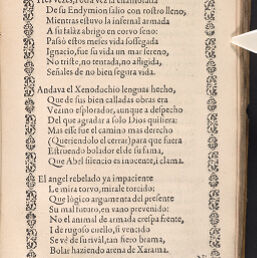 Tres vezes, y otra vez la enamorada
De su Endymion salio con rostro lleno,
Mientras estuvo la infernal armada
A su falaz abrigo en corvo seno:
Passò estos meses vida sossegada
Ignacio, fue su vida un mar sereno,
No triste, no tentada, no afligida,
Señales de no bien segura vida.
Andava el Xenodochio lenguas hecho,
Que de sus bien calladas obras era
Vezino esplorador, aunque a despecho
Del que agradar a solo Dios quisiera:
Mas esse fue el camino mas derecho
(Queriendolo el cerrar) para que fuera
Estruendo bolador el de su fama,
Que Abel silencio es inocente, i clama.
El angel rebelado ya impaciente
Le mira torvo, mirale torcido:
Que lògico argumenta del presente
Su mal futuro, en vano prevenido:
No el animal de armada crespa frente,
I de rugoso cuello, si vencido
Se vè de su rival, tan fiero brama,
Bolar haziendo arena de Xarama.